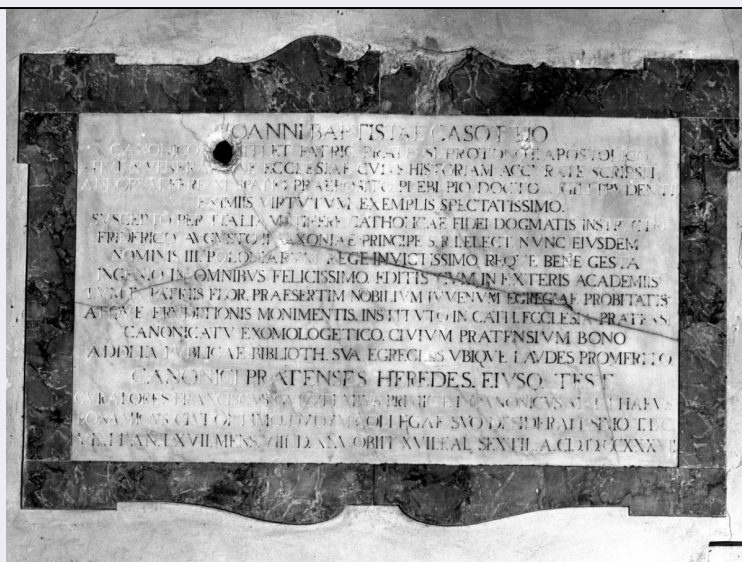 IOANNI BAPTISTAE CASOTTIO
CANONICO ET PATRIC. PRATENSI, PROTONOT. APOSTOLICO
ECCLESIAE CVIVS HISTORIAM ACCVRATE SCRIPSIT
ANNORVM FERE SPATIO PRAEPOSITO PLEBI PIO DOCTO
EXIMIIS VIRTVTVM EXEMPLIS SPECTATISSIMO.
SVSCEPTO PER ITALIAM ITINERE CATHOLICAE FIDEI DOGMATIS INSTRVCTO
FRIDERICO AVGVSTO SAXONIAE PRINCIPE S. R. I. ELECT. NVNC EIVSDEM
NOMINIS III. POLONIARVM REGE INVICTISSIMO, REQVE BENE GESTA
INGENIO IN OMNIBVS FELICISSIMO, EDITIS CVM IN EXTERIS ACADEMIIS
TVM IN PATRIIS FLOR. PRAESERTIM NOBILIVM IVVENVM EGREGIAE PROBITATIS
ATQVE ERVDITIONIS MONIMENTIS, INSTITVTO IN CATH. ECCLESIA PRATENSI
CANONICATV EXOMOLOGETICO, CIVIVM PRATENSIVM BONO
ADDITA PVBLICAE BIBLIOTH. SVA EGREGIAS VBIQVE LAVDES PROMERITO
CANONICI PRATENSES HEREDES. EIVSQ. TEST.
CVRATORES FRANCISCVS CANONICVS
BONAMICVS CIVI OPTIMO COLLEGAE SVO DESIDERATISSIMO
VIXIT AN. LXVII. MENS. VIII. OBIIT SEXTIL. A.